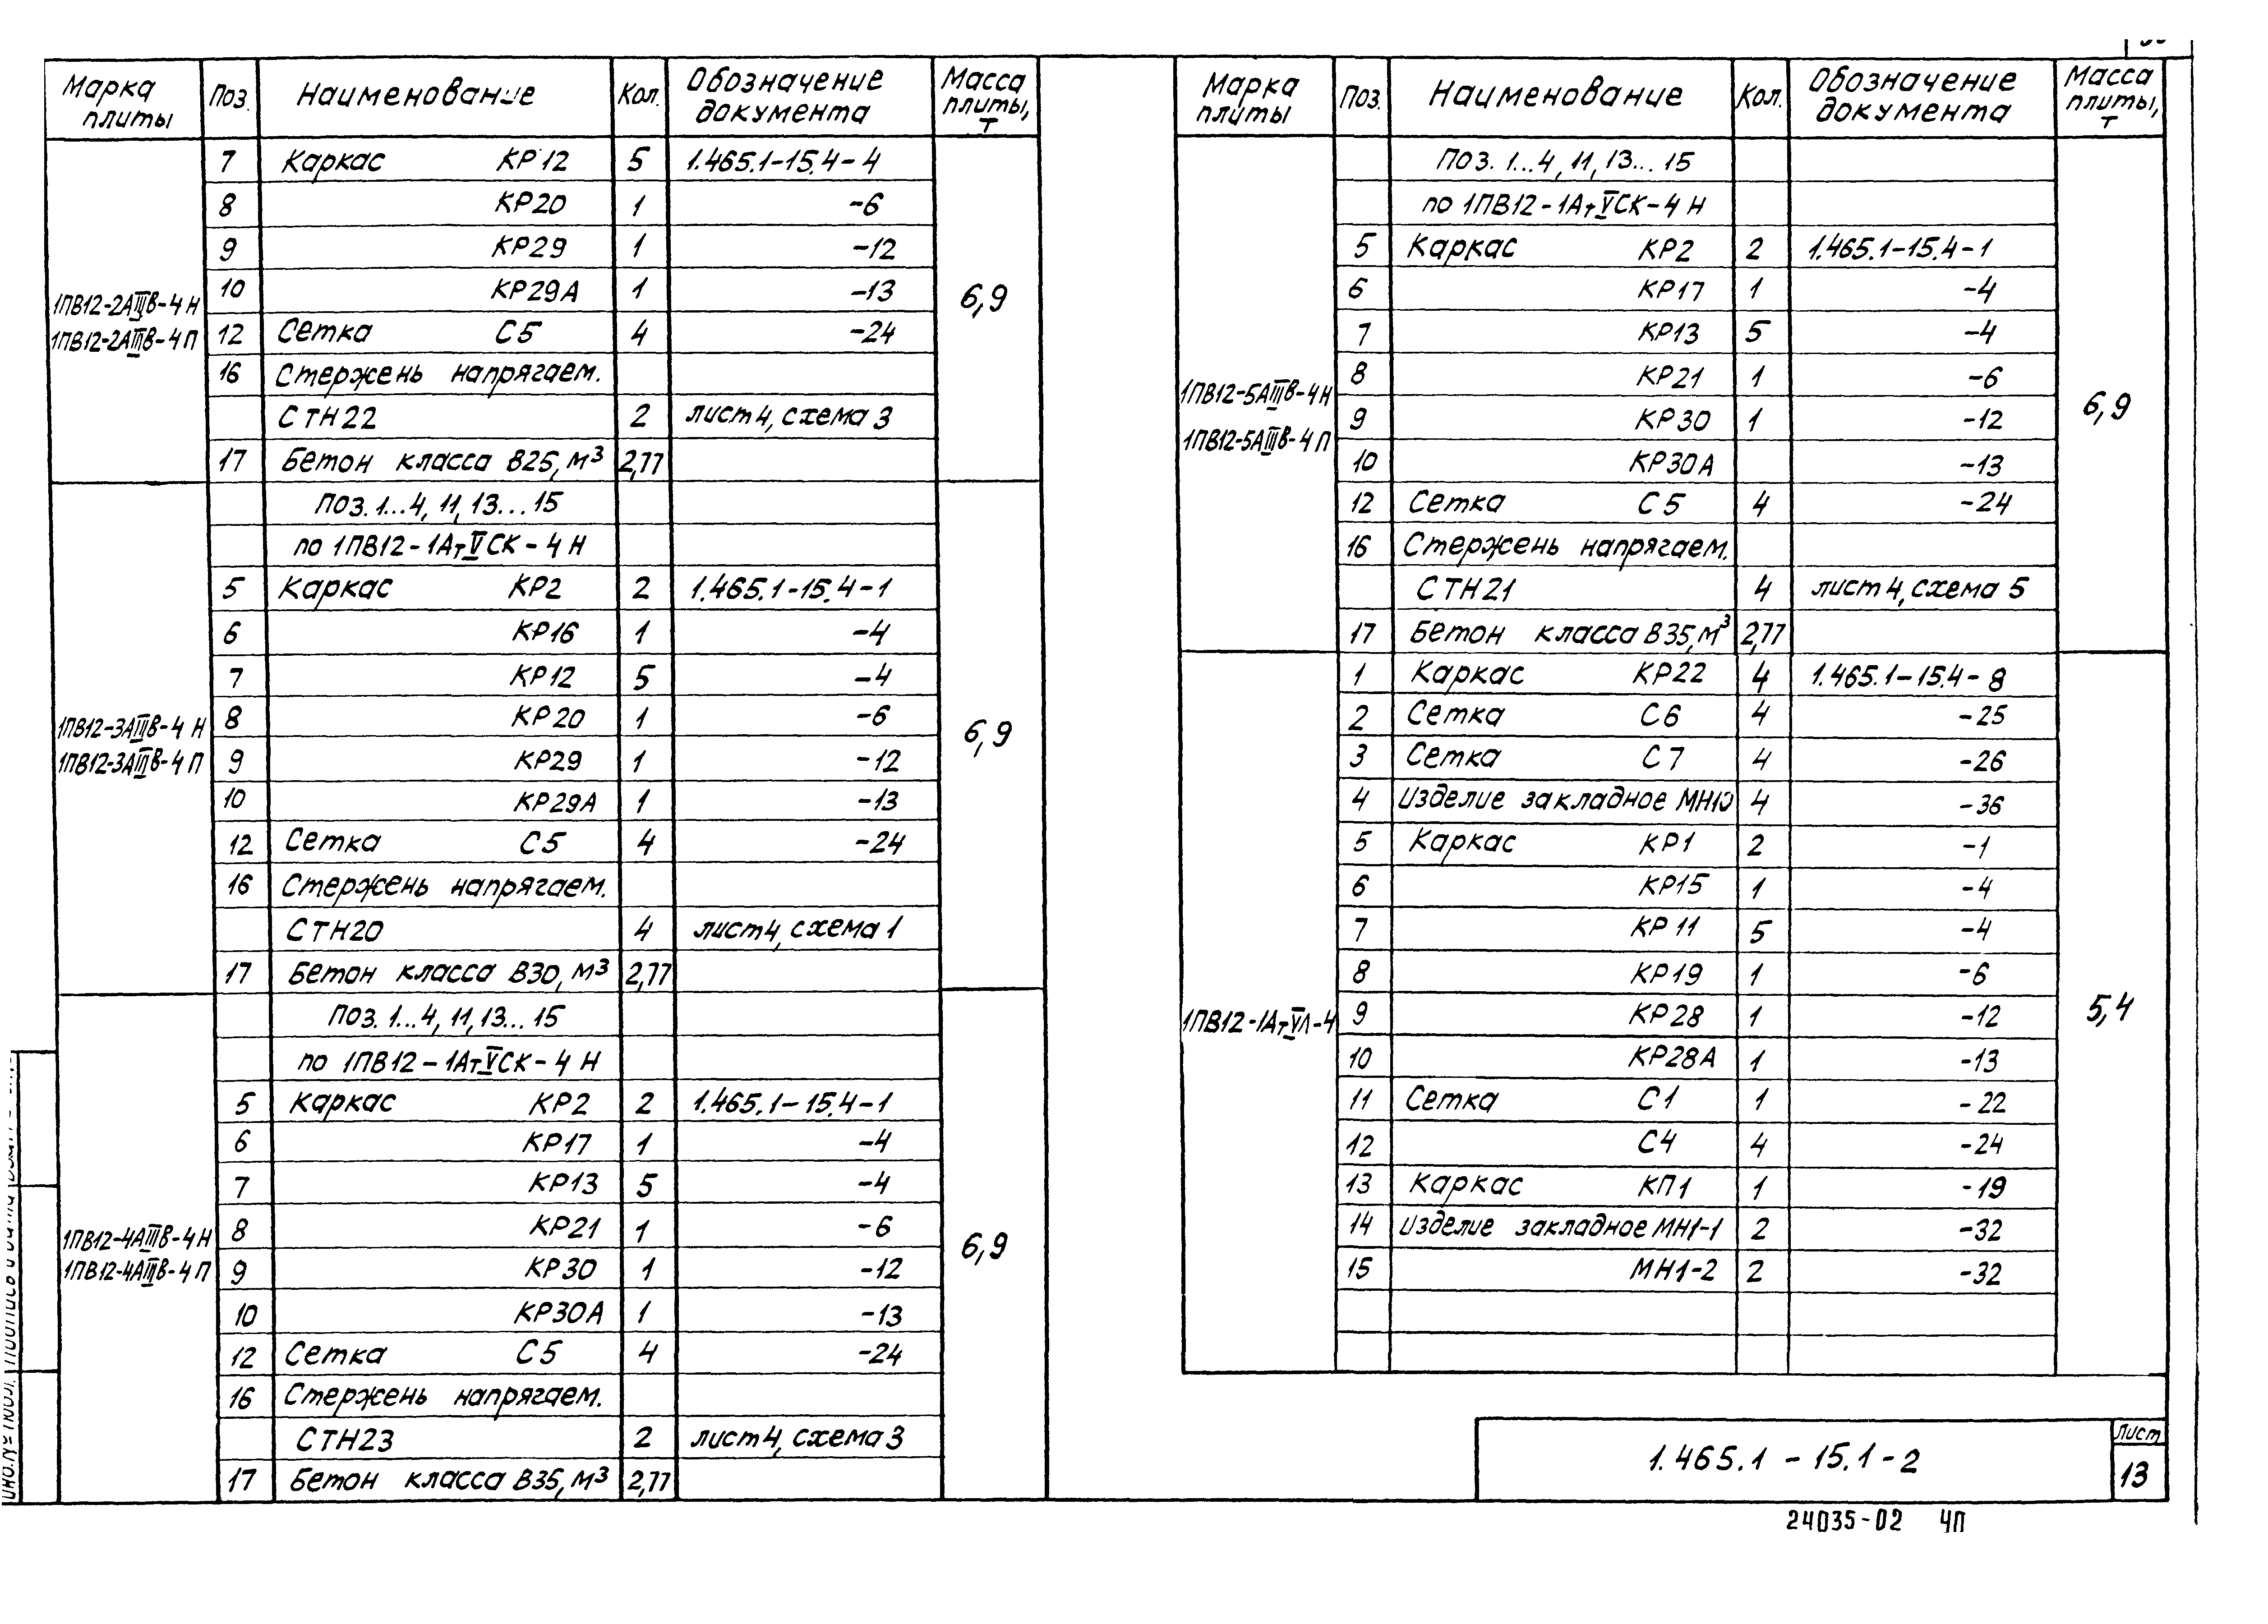 Марка плиты Поз. Наименование Кол. Обозначение документа Масса плиты, т
1ПВ12-2АIIIв-4Н
1ПВ12-2АIIIв-4П
6,9
7 Каркас КР12 5 1.465.1-15.4-4
8 КР20 1 -6
9 КР29 1 -12
10 КР29А 1 -13
12 Сетка С5 4 -24
16 Стержень напрягаем.
СТН22 2 лист 4, схема 3
17 Бетон класса В25, м³ 2,77
1ПВ12-3АIIIв-4Н
1ПВ12-3АIIIв-4П
6,9
Поз. 1...4, 11, 13...15
по 1ПВ12-1АтVСК-4Н
5 Каркас КР2 2 1.465.1-15.4-1
6 КР16 1 -4
7 КР12 5 -4
8 КР20 1 -6
9 КР29 1 -12
10 КР29А 1 -13
12 Сетка С5 4 -24
16 Стержень напрягаем.
СТН20 4 лист 4, схема 1
17 Бетон класса В30, м³ 2,77
1ПВ12-4АIIIв-4Н
1ПВ12-4АIIIв-4П
6,9
Поз. 1...4, 11, 13...15
по 1ПВ12-1АтVСК-4Н
5 Каркас КР2 2 1.465.1-15.4-1
6 КР17 1 -4
7 КР13 5 -4
8 КР21 1 -6
9 КР30 1 -12
10 КР30А 1 -13
12 Сетка С5 4 -24
16 Стержень напрягаем.
СТН23 2 лист 4, схема 3
17 Бетон класса В35, м³ 2,77
Марка плиты Поз. Наименование Кол. Обозначение документа Масса плиты, т
1ПВ12-5АIIIв-4Н
1ПВ12-5АIIIв-4П
6,9
Поз. 1...4, 11, 13...15
по 1ПВ12-1АтVСК-4Н
5 Каркас КР2 2 1.465.1-15.4-1
6 КР17 1 -4
7 КР13 5 -4
8 КР21 1 -6
9 КР30 1 -12
10 КР30А -13
12 Сетка С5 4 -24
16 Стержень напрягаем.
СТН21 4 лист 4, схема 5
17 Бетон класса В35, м³ 2,77
1ПВ12-1АтVЛ-4
5,4
1 Каркас КР22 4 1.465.1-15.4-8
2 Сетка С6 4 -25
3 Сетка С7 4 -26
4 Изделие закладное МН10 4 -36
5 Каркас КР1 2 -1
6 КР15 1 -4
7 КР11 5 -4
8 КР19 1 -6
9 КР28 1 -12
10 КР28А 1 -13
11 Сетка С1 1 -22
12 С4 4 -24
13 Каркас КП1 1 -19
14 Изделие закладное МН1-1 2 -32
15 МН1-2 2 -32
1.465.1-15.1-2
Лист
13
24035-02 ЧП